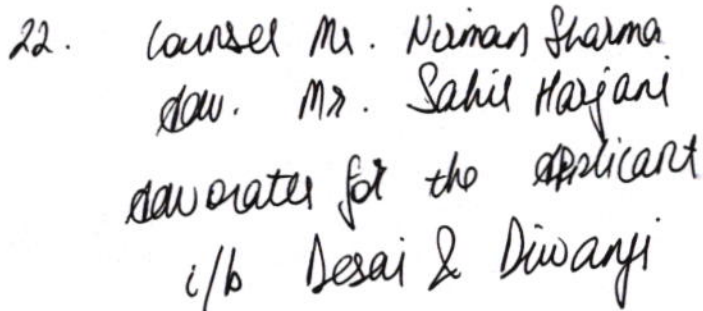 22. Counsel Mr. Nirman Sharma
Adv. Mr. Sahil Harjani
Advocates for the Applicant
i/b Desai & Diwanji